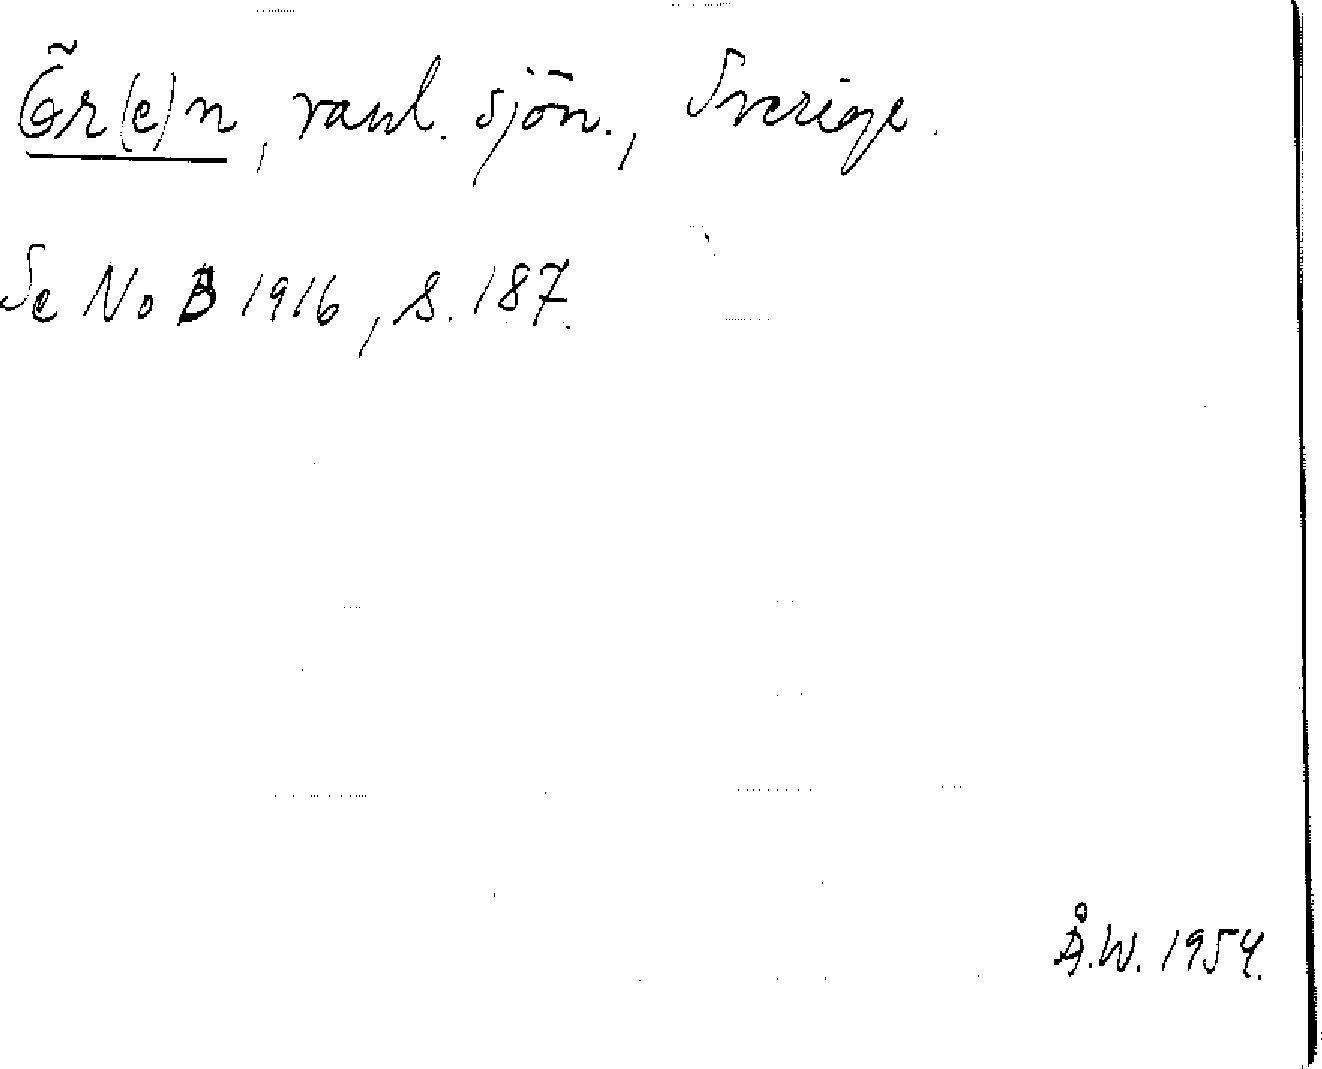 Ör(e)n, vanl. sjön., Sverige.
Se NoB 1916, s. 187.
Å.W. 1954.